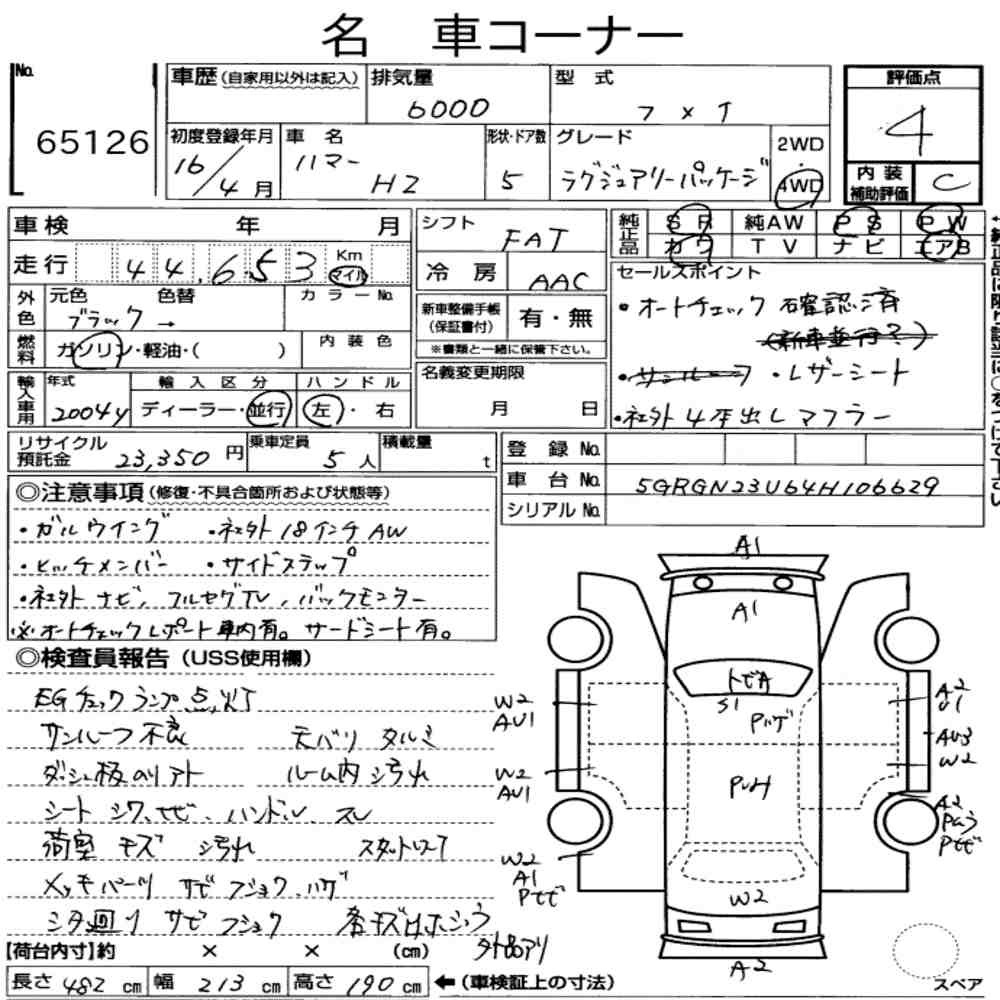 名 車コーナー
No. 65126
車歴 (自家用以外は記入)
排気量 6000
型式 フメイ
評価点 4
内装補助評価 C
初度登録年月 16/4月
車名 ハマー H2
形状・ドア数 5
グレード ラグジュアリーパッケージ
2WD・4WD
車検 年 月
走行 44,653 Km マイル
シフト FAT
冷房 AAC
純正品 SR 純AW PS PW
カワ TV ナビ エアB
セールスポイント
・オートチェック確認済
(新車並行?)
・サンルーフ ・レザーシート
・社外4本出しマフラー
外色 元色 ブラック → 色替 カラーNo.
燃料 ガソリン・軽油・( ) 内装色
新車整備手帳(保証書付) 有・無
※書類と一緒に保管下さい。
名義変更期限 月 日
輸入車用 年式 2004y
輸入区分 ディーラー・並行
ハンドル 左・右
リサイクル預託金 23,350円
乗車定員 5人
積載量 t
登録No.
車台No. 5GRGN23U64H106629
シリアルNo.
◎注意事項(修復・不具合箇所および状態等)
・ガルウイング ・社外18インチAW
・ヒッチメンバー ・サイドステップ
・社外ナビ、フルセグTV、バックモニター
※オートチェックレポート車内有。サードシート有。
◎検査員報告(USS使用欄)
EGチェックランプ点灯
サンルーフ不良 天バリタルミ
ダッシュ板のリアト
ルーム内汚れ
シートシワ、ナビ、ハンドル、スレ
荷室キズ 汚れ
メッキパーツ サビフショク、ハゲ
シタ回リ サビフショク
外品アリ
A1
A1
トビA
S1
Pハゲ
W2
AU1
A2
U1
AU3
W2
W2
AU1
A2
W2
A1
W2
A2
スペア
【荷台内寸】約 × × (cm)
長さ 482 cm 幅 213 cm 高さ 190 cm ←(車検証上の寸法)